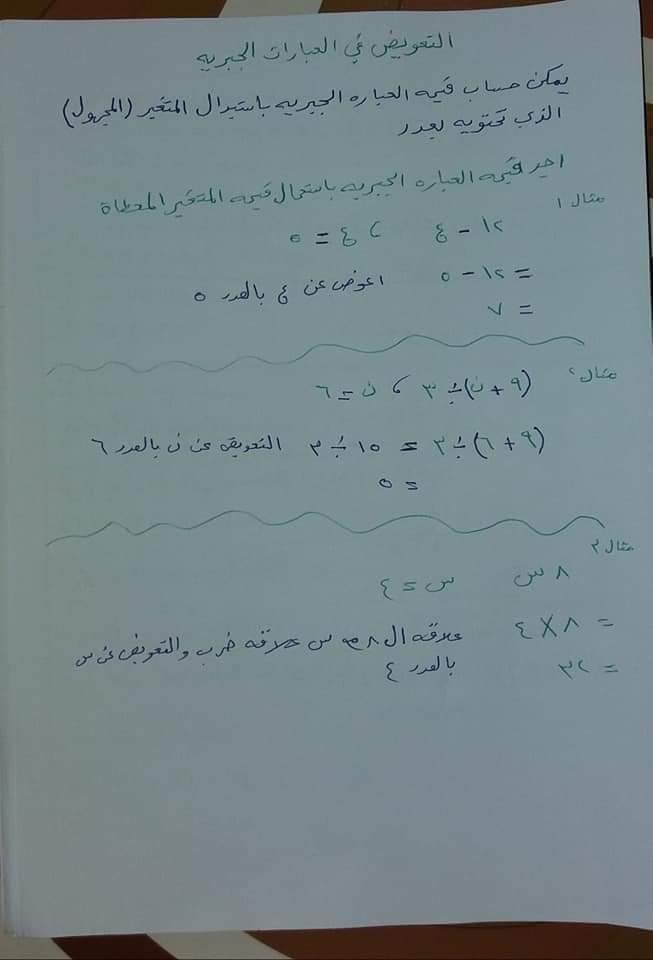 التعويض في العبارات الجبريه
يمكن حساب قيمه العباره الجبريه باستبدال المتغير (المجهول)
الذي تحتويه بعدد
اجد قيمه العباره الجبريه باستعمال قيمه المتغير المعطاة
مثال ١
١٢ - ع ، ع = ٥
= ١٢ - ٥ اعوض عن ع بالعدد ٥
= ٧
مثال ٢
(٩ + ن) ÷ ٣ ، ن = ٦
(٩ + ٦) ÷ ٣ = ١٥ ÷ ٣ التعويض عن ن بالعدد ٦
= ٥
مثال ٣
٨ س س = ٤
= ٨ × ٤ علاقه ال ٨ مع س علاقه ضرب والتعويض عن س
= ٣٢ بالعدد ٤